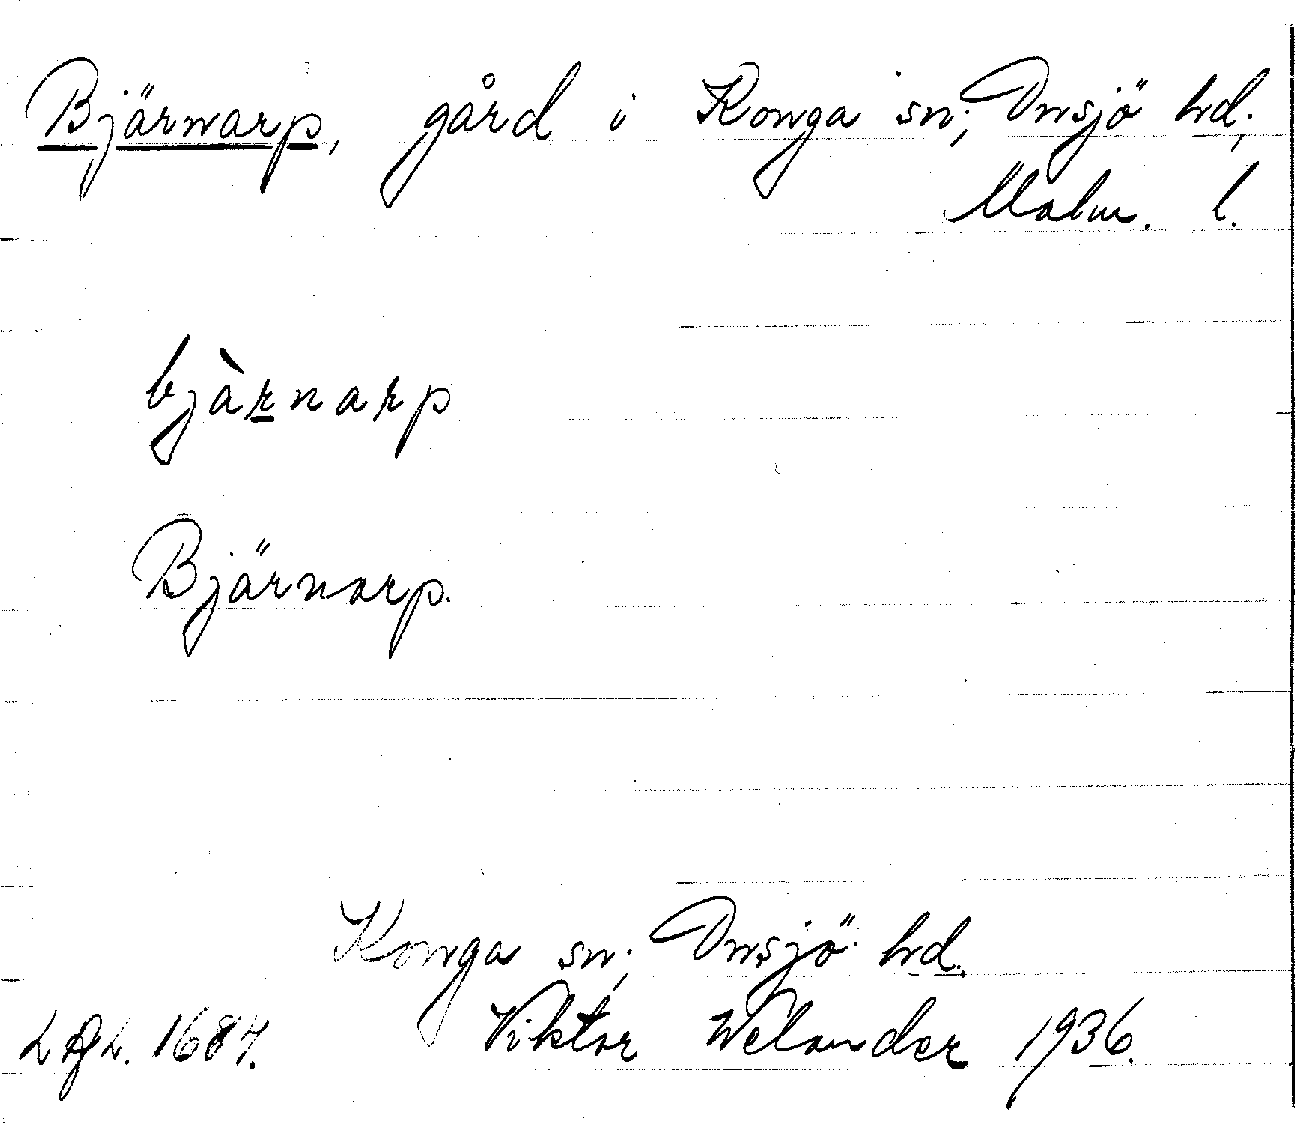 Bjärnarp, gård i Konga sn; Onsjö hd;
Malm. l.
bjàrnarp
Bjärnarp.
Konga sn; Onsjö hd.
Viktor Welander 1936.